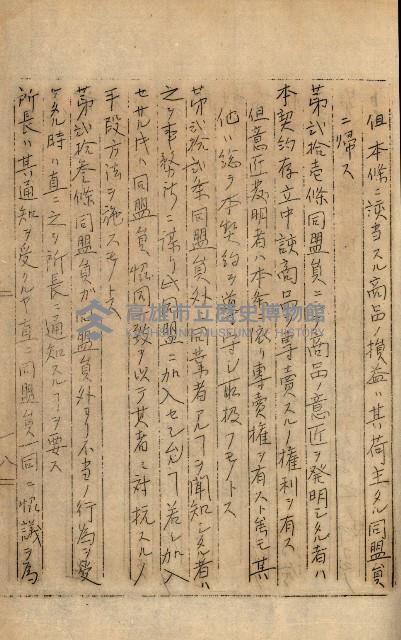 但本條ニ該当スル商品ノ損益ハ其荷主タル同盟員
ニ帰ス
第弐拾壱條同盟員ハ商品ノ意匠ヲ発明シタル者ハ
本契約存立中該商品ノ専賣スルノ權利ヲ有ス
但意匠発明者ハ本条ニ依リ専賣権ヲ有スト虽モ其
他ハ総テ本契約ヲ遵守シ取扱フモノトス
第弐拾弐条同盟員外ノ同業者アルヿヲ聞知シタル者ハ
之ヲ事務所ニ謀リ此同盟ニ加入セシムベシ若シ加入
セサル片ハ同盟員協同一致ヲ以テ其者ニ対抗スルノ
手段方法ヲ施スモノトス
第弐拾参條同盟員ガ同盟員外ヨリ不当ノ行為ヲ受
ケタル時ハ直ニ之ヲ所長ニ通知スルヿヲ要ス
所長ハ其通知ヲ受クルヤ直ニ同盟員一同ニ協議ヲ為
高雄市立歷史博物館
KAOHSIUNG MUSEUM OF HISTORY
一八